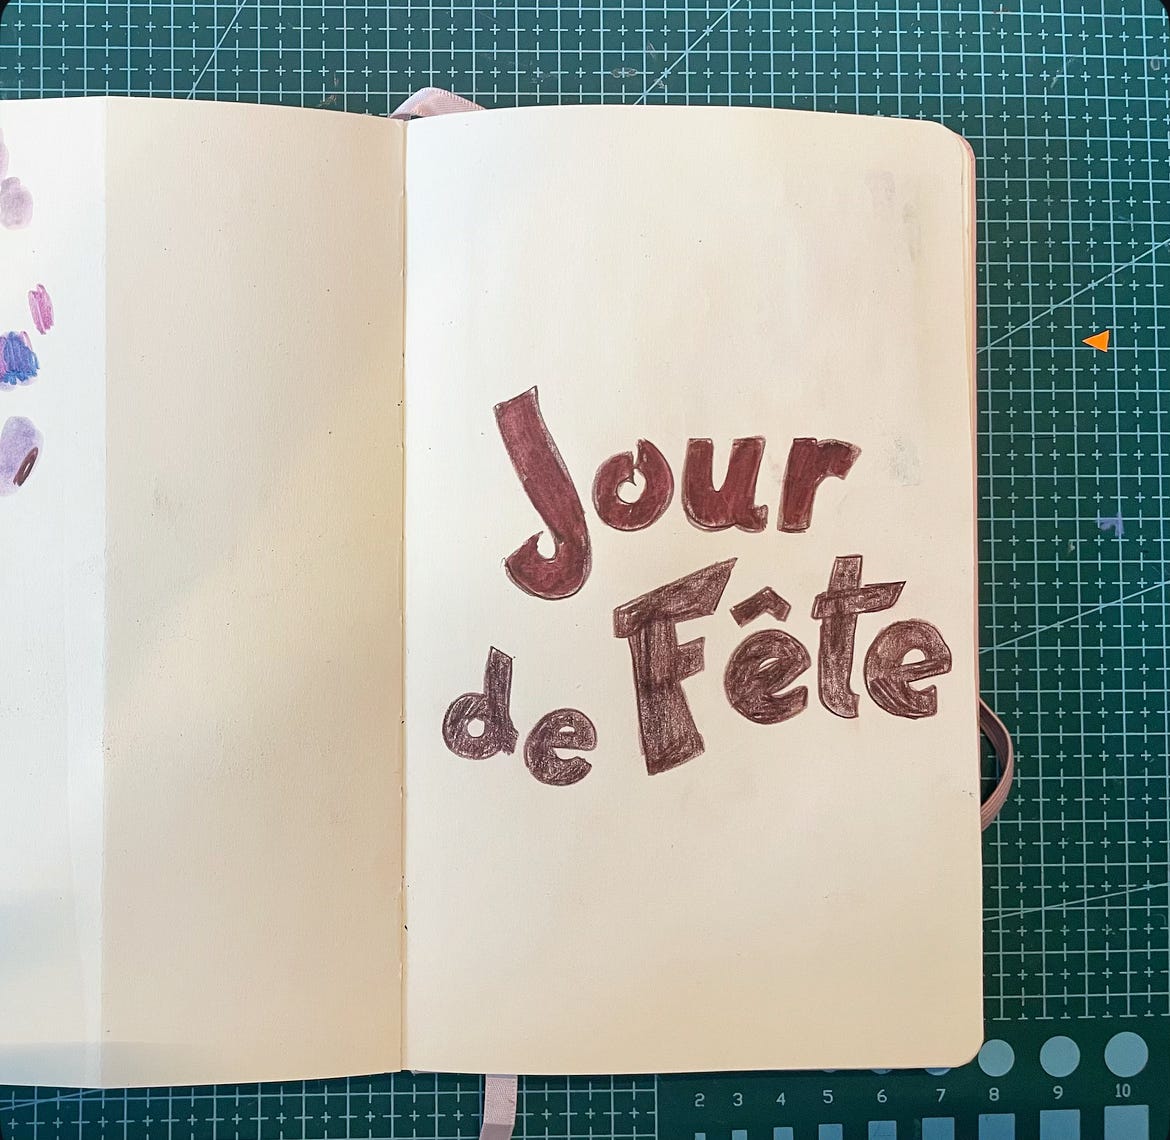 Jour
de Fête
2 3 4 5 6 7 8 9 10